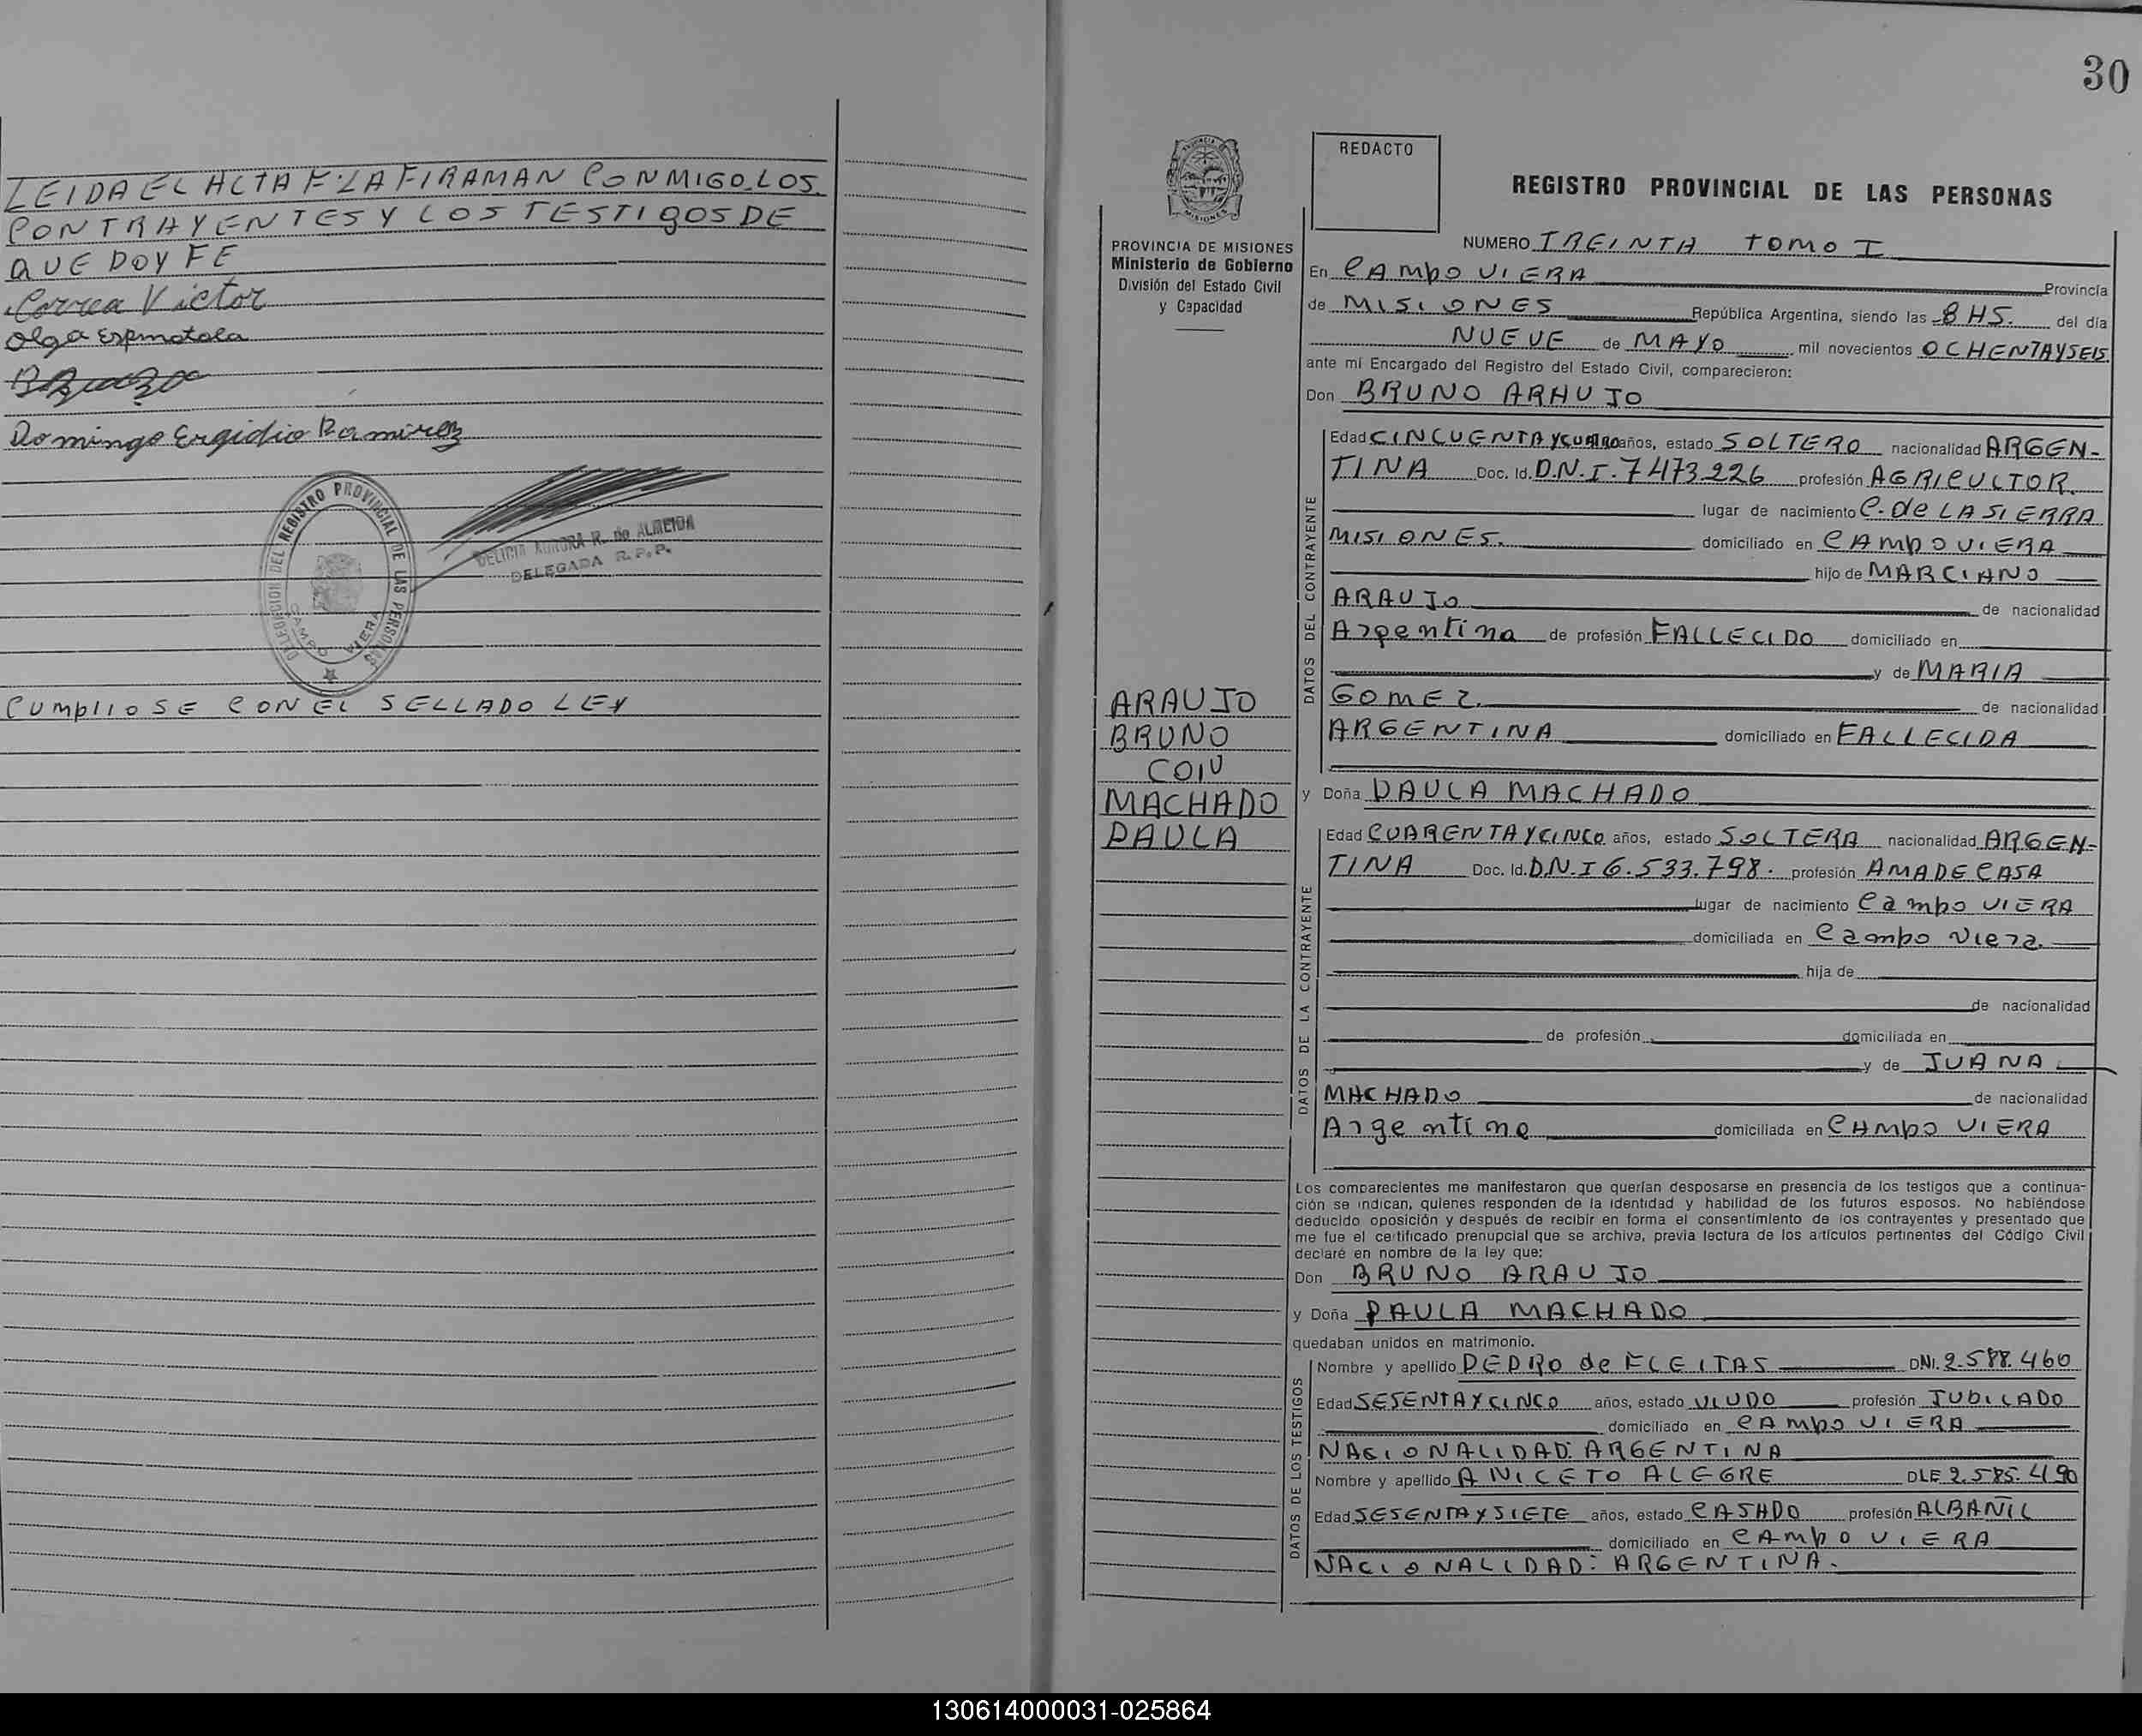 LEIDA EL ACTA F. LA FIRAMAN CONMIGO LOS
CONTRAYENTES Y LOS TESTIGOS DE
QUE DOY FE
Correa Victor
Olga Espindola
Domingo Ergidio Ramirez
DELEGACION DEL REGISTRO PROVINCIAL DE LAS PERSONAS
CAMPO VIERA
DELICIA AURORA R. de ALMEIDA
DELEGADA R.P.P.
CUMPLIOSE CON EL SELLADO LEY
30
REDACTO
PROVINCIA DE MISIONES
Ministerio de Gobierno
División del Estado Civil
y Capacidad
ARAUJO
BRUNO
CON
MACHADO
PAULA
REGISTRO PROVINCIAL DE LAS PERSONAS
NUMERO TREINTA TOMO I
En CAMPO VIERA Provincia
de MISIONES República Argentina, siendo las 8 HS. del día
NUEVE de MAYO mil novecientos OCHENTAYSEIS
ante mí Encargado del Registro del Estado Civil, comparecieron:
Don BRUNO ARAUJO
DATOS DEL CONTRAYENTE
Edad CINCUENTAYCUATRO años, estado SOLTERO nacionalidad ARGEN-
TINA Doc. Id. D.N.I. 7473226 profesión AGRICULTOR.
lugar de nacimiento C. de LA SIERRA
MISIONES. domiciliado en CAMPO VIERA
hijo de MARCIANO
ARAUJO de nacionalidad
Argentina de profesión FALLECIDO domiciliado en
y de MARIA
GOMEZ. de nacionalidad
ARGENTINA domiciliado en FALLECIDA
y Doña PAULA MACHADO
DATOS DE LA CONTRAYENTE
Edad CUARENTAYCINCO años, estado SOLTERA nacionalidad ARGEN-
TINA Doc. Id. D.N.I 6.533.798. profesión AMA DE CASA
lugar de nacimiento Campo VIERA
domiciliada en Campo Viera.
hija de
de nacionalidad
de profesión domiciliada en
y de JUANA
MACHADO de nacionalidad
Argentina domiciliada en CAMPO VIERA
Los comparecientes me manifestaron que querían desposarse en presencia de los testigos que a continua-
ción se indican, quienes responden de la identidad y habilidad de los futuros esposos. No habiéndose
deducido oposición y después de recibir en forma el consentimiento de los contrayentes y presentado que
me fue el certificado prenupcial que se archiva, previa lectura de los artículos pertinentes del Código Civil
declaré en nombre de la ley que:
Don BRUNO ARAUJO
y Doña PAULA MACHADO
quedaban unidos en matrimonio.
DATOS DE LOS TESTIGOS
Nombre y apellido PEDRO de FLEITAS DNI. 2.588.460
Edad SESENTAYCINCO años, estado VIUDO profesión JUBILADO
domiciliado en CAMPO VIERA
NACIONALIDAD: ARGENTINA
Nombre y apellido ANICETO ALEGRE DLE 2.585.490
Edad SESENTAYSIETE años, estado CASADO profesión ALBAÑIL
domiciliado en CAMPO VIERA
NACIONALIDAD: ARGENTINA.
130614000031-025864